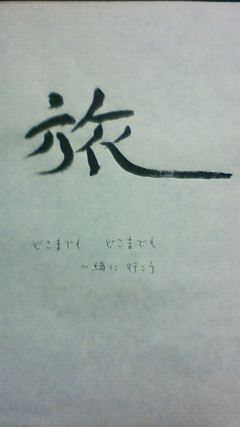 旅
どこまでも　どこまでも
一緒に 行こう